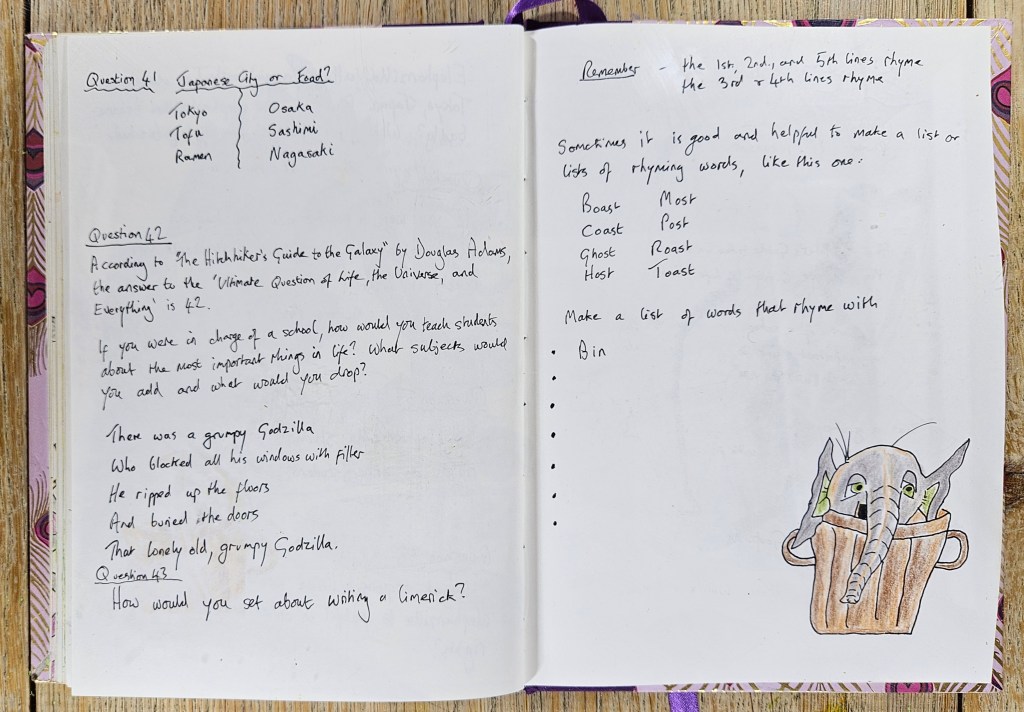 Question 41 Japanese City or Food?
Tokyo Osaka
Tofu Sashimi
Ramen Nagasaki
Question 42
According to "The Hitchhiker's Guide to the Galaxy" by Douglas Adams,
the answer to the 'Ultimate Question of Life, the Universe, and
Everything' is 42.
If you were in charge of a school, how would you teach students
about the most important things in life? What subjects would
you add and what would you drop?
There was a grumpy Godzilla
Who blocked all his windows with filler
He ripped up the floors
And buried the doors
That lonely old, grumpy Godzilla.
Question 43
How would you set about writing a limerick?
Remember - the 1st, 2nd, and 5th lines rhyme
the 3rd & 4th lines rhyme
Sometimes it is good and helpful to make a list or
lists of rhyming words, like this one:
Boast Most
Coast Post
Ghost Roast
Host Toast
Make a list of words that rhyme with
• Bin